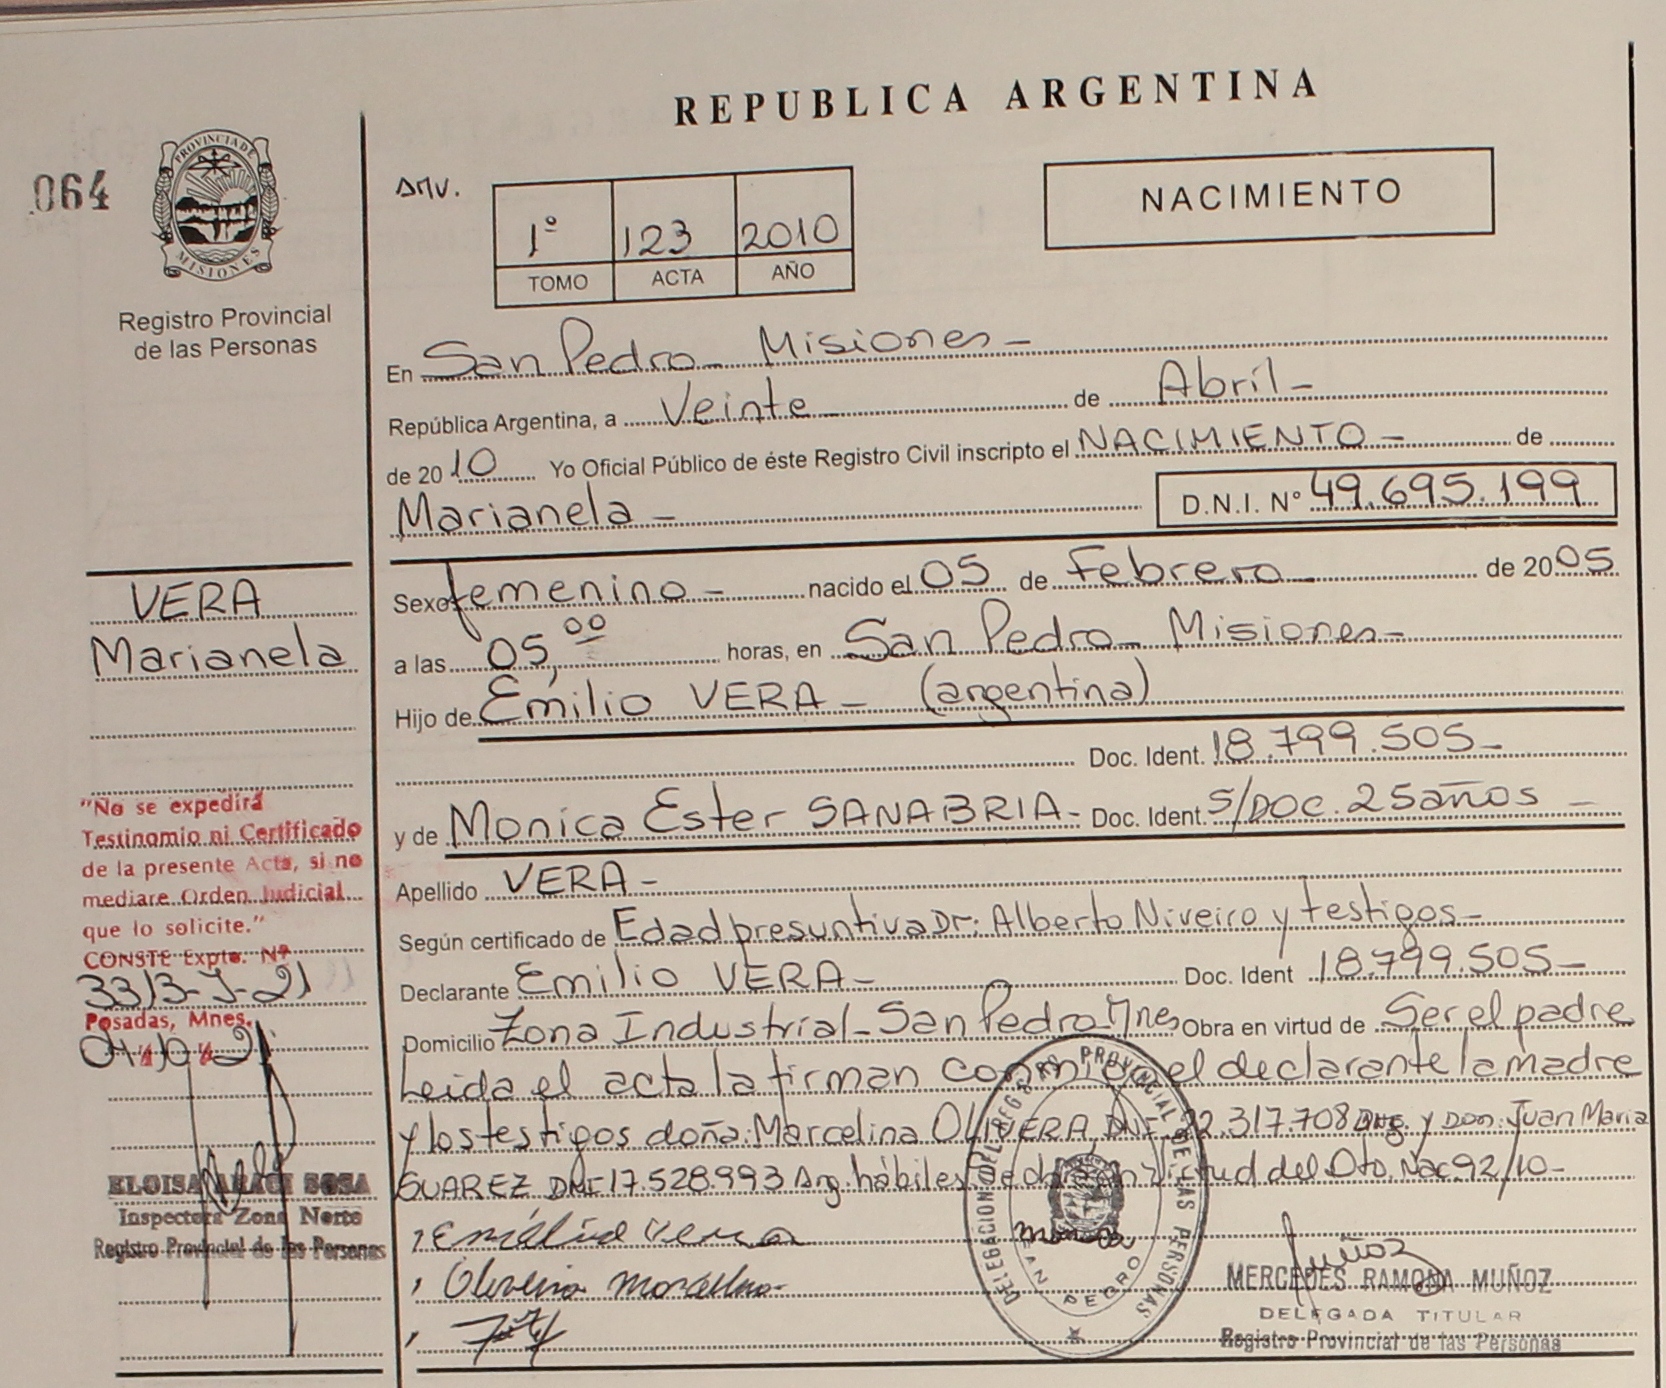 REPUBLICA ARGENTINA
064
PROVINCIA DE
MISIONES
Registro Provincial
de las Personas
1º 123 2010
TOMO ACTA AÑO
NACIMIENTO
En San Pedro - Misiones -
República Argentina, a Veinte de Abril -
de 2010 Yo Oficial Público de éste Registro Civil inscripto el NACIMIENTO - de
Marianela - D.N.I. Nº 49.695.199
VERA
Marianela
Sexo femenino - nacido el 05 de Febrero de 2005
a las 05,00 horas, en San Pedro - Misiones -
Hijo de Emilio VERA - (argentina)
Doc. Ident. 18.799.505 -
y de Monica Ester SANABRIA - Doc. Ident. S/DOC. 25 años -
Apellido VERA -
Según certificado de Edad presuntiva Dr: Alberto Niveiro y testigos -
Declarante Emilio VERA - Doc. Ident 18.799.505 -
Domicilio Zona Industrial - San Pedro Mnes Obra en virtud de Ser el padre
Leida el acta la firman conmigo el declarante la madre
y los testigos doña: Marcelina OLIVERA, DNI 22.317.708 Arg. y Don: Juan Maria
SUAREZ DNI 17.528.993 Arg. hábiles de del Dto. Nac 92/10 -
"No se expedirá
Testinomio ni Certificado
de la presente Acta, si no
mediare Orden Judicial
que lo solicite."
CONSTE Expte. Nº
3313-J-21
Posadas, Mnes.
ELOISA ARACI SOSA
Inspectora Zona Norte
Registro Provincial de las Personas
Emilio Vera
Olivera Marcelina
DELEGACION DEL REGISTRO PROVINCIAL DE LAS PERSONAS
SAN PEDRO
Muñoz
MERCEDES RAMONA MUÑOZ
DELEGADA TITULAR
Registro Provincial de las Personas